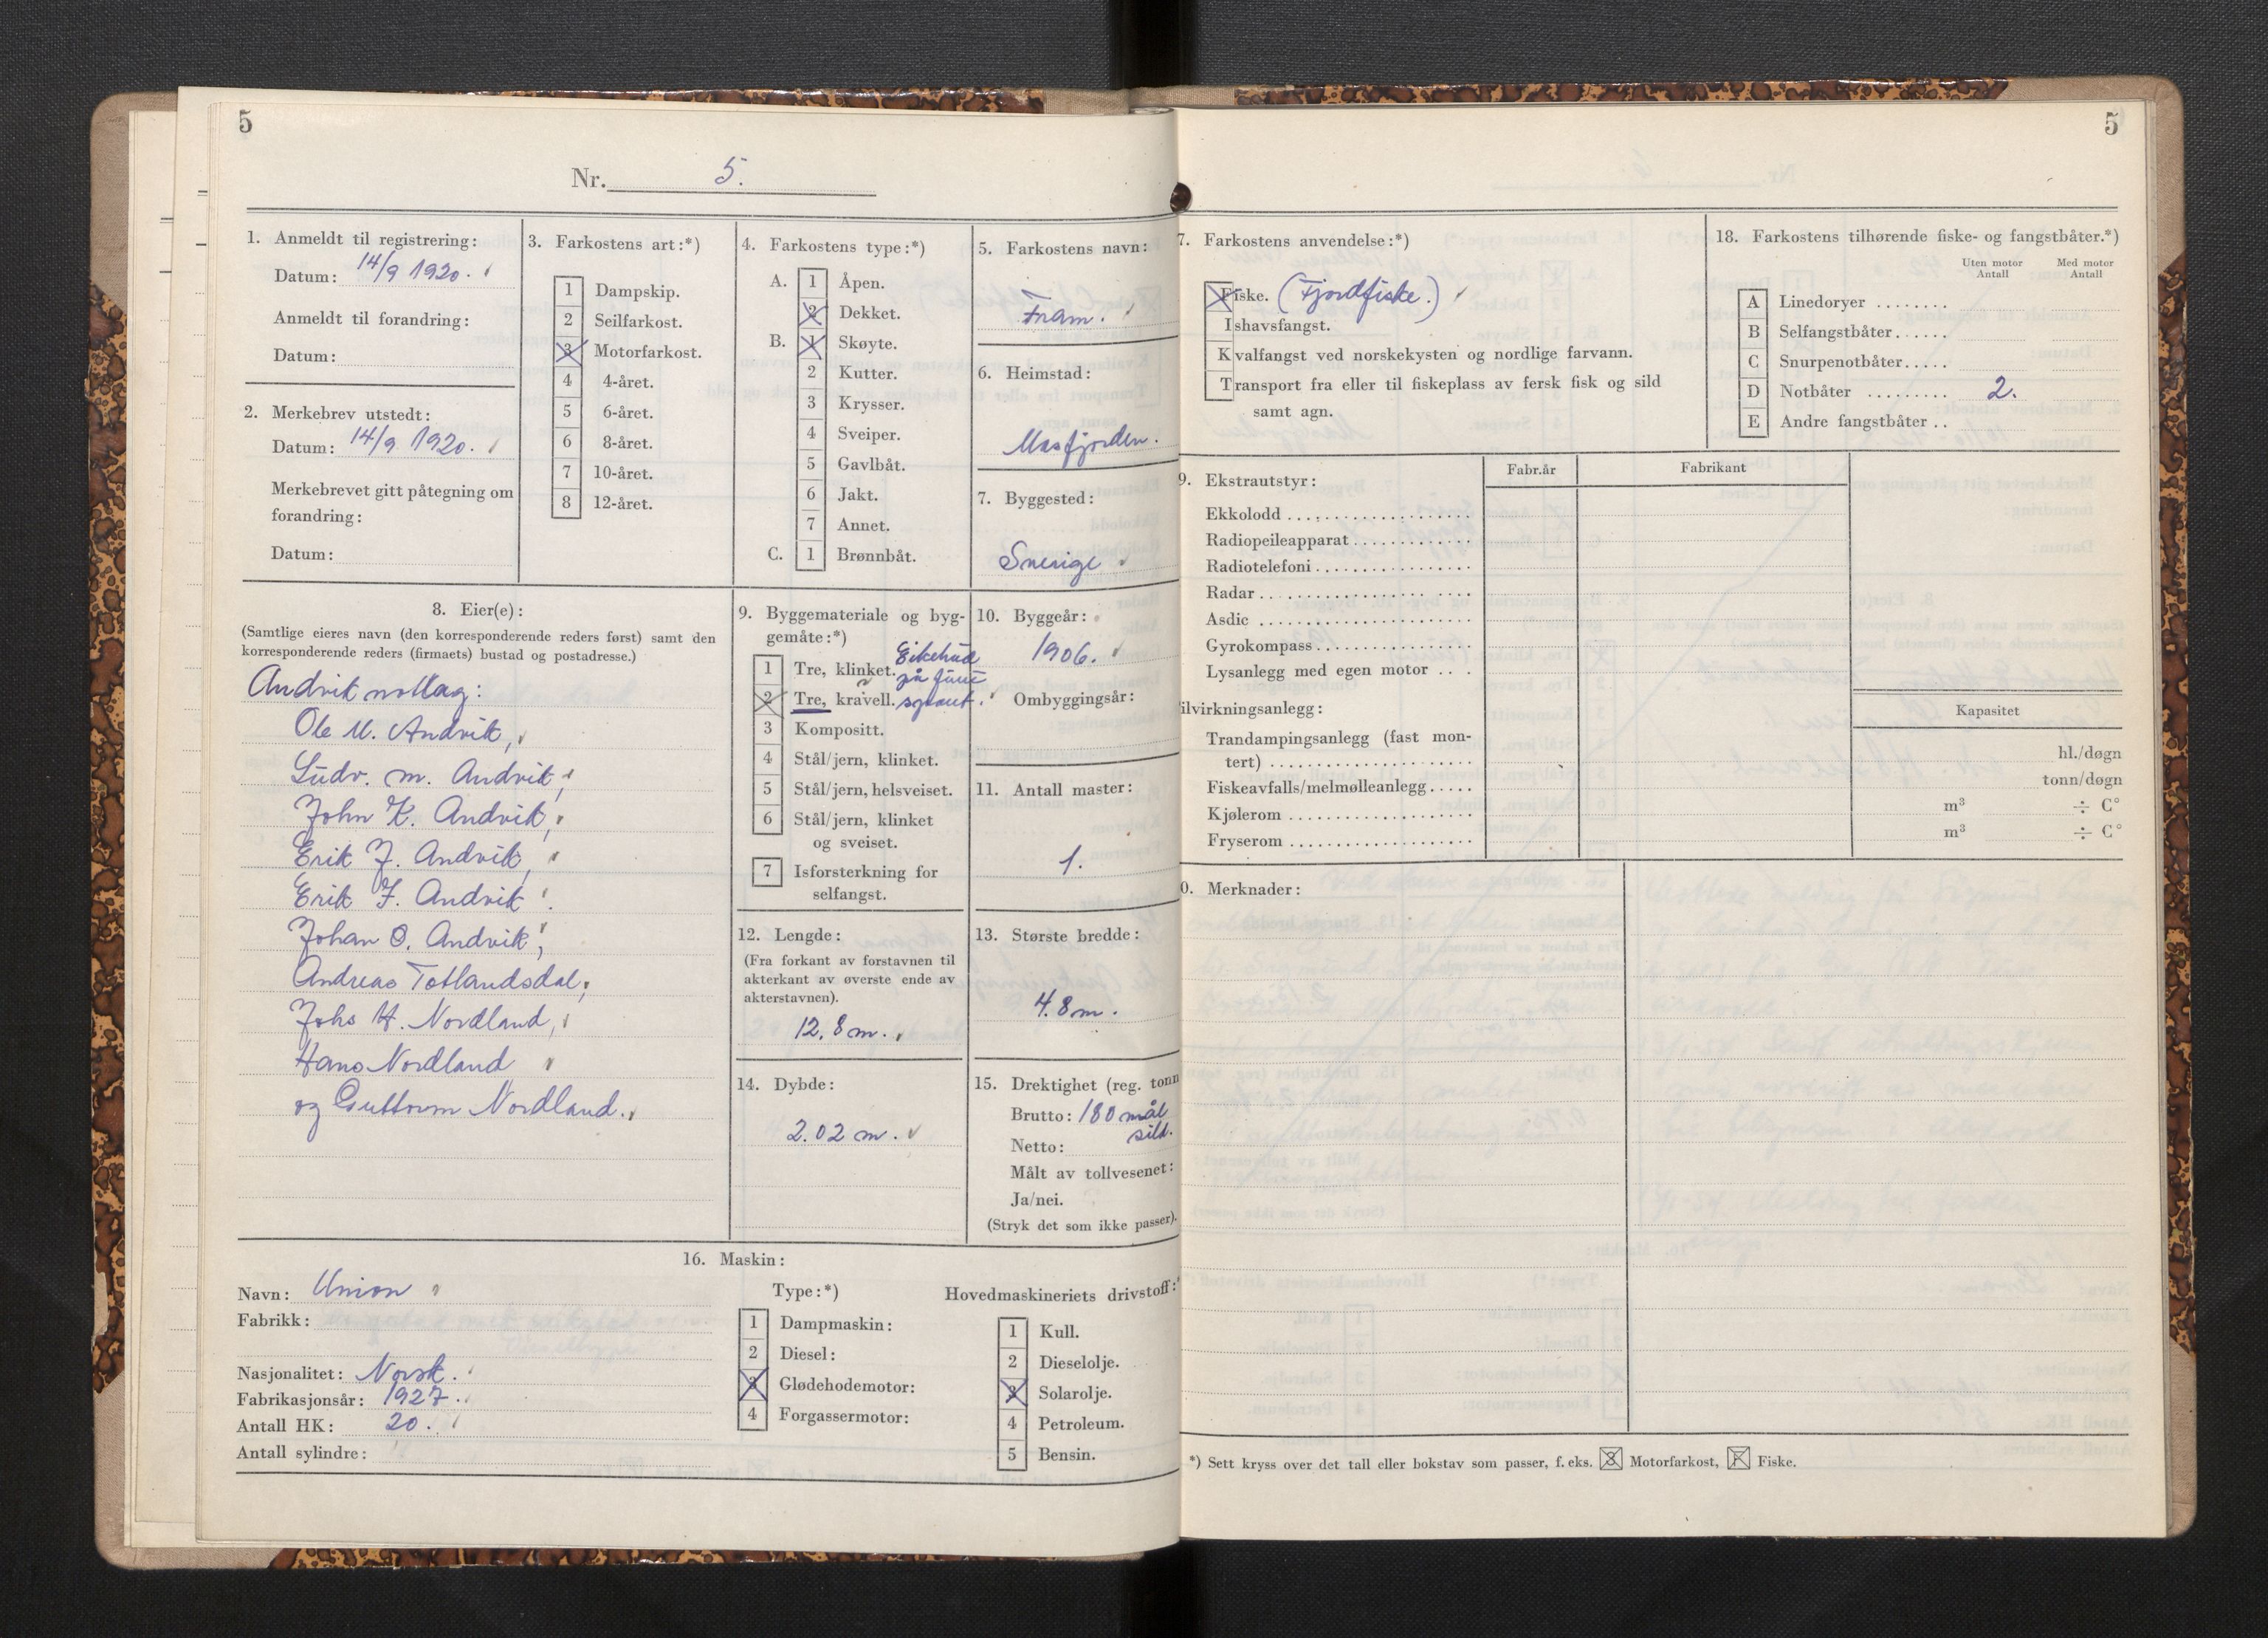 5
Nr. 5.
1. Anmeldt til registrering:
Datum: 14/9 1920.
Anmeldt til forandring:
Datum:
2. Merkebrev utstedt:
Datum: 14/9 1920.
Merkebrevet gitt påtegning om
forandring:
Datum:
3. Farkostens art:*)
1 Dampskip.
2 Seilfarkost.
3 Motorfarkost.
4 4-året.
5 6-året.
6 8-året.
7 10-året.
8 12-året.
4. Farkostens type:*)
A. 1 Åpen.
2 Dekket.
B. 1 Skøyte.
2 Kutter.
3 Krysser.
4 Sveiper.
5 Gavlbåt.
6 Jakt.
7 Annet.
C. 1 Brønnbåt.
5. Farkostens navn:
Fram.
6. Heimstad:
Masfjorden.
7. Byggested:
Sverige
8. Eier(e):
(Samtlige eieres navn (den korresponderende reders først) samt den
korresponderende reders (firmaets) bustad og postadresse.)
Andvik notlag:
Ole M. Andvik,
Ludv. M. Andvik,
John K. Andvik,
Erik J. Andvik,
Erik F. Andvik
Johan O. Andvik,
Andreas Totlandsdal,
Johs H. Nordland,
Hans Nordland
og Guttorm Nordland.
9. Byggemateriale og byg-
gemåte:*)
1 Tre, klinket. Eikehud
på furu
2 Tre, kravell. spant.
3 Kompositt.
4 Stål/jern, klinket.
5 Stål/jern, helsveiset.
6 Stål/jern, klinket
og sveiset.
7 Isforsterkning for
selfangst.
10. Byggeår:
1906.
Ombyggingsår:
11. Antall master:
1.
12. Lengde:
(Fra forkant av forstavnen til
akterkant av øverste ende av
akterstavnen).
12,8 m.
13. Største bredde:
4.8 m.
14. Dybde:
2.02 m.
15. Drektighet (reg. tonn
Brutto: 180 mål
sild.
Netto:
Målt av tollvesenet:
Ja/nei.
(Stryk det som ikke passer).
16. Maskin:
Navn: Union
Fabrikk:
Nasjonalitet: Norsk.
Fabrikasjonsår: 1927.
Antall HK: 20.
Antall sylindre:
Type:*)
1 Dampmaskin:
2 Diesel:
3 Glødehodemotor:
4 Forgassermotor:
Hovedmaskineriets drivstoff:*
1 Kull.
2 Dieselolje.
3 Solarolje.
4 Petroleum.
5 Bensin.
5
7. Farkostens anvendelse:*)
Fiske. (Fjordfiske.)
Ishavsfangst.
Kvalfangst ved norskekysten og nordlige farvann.
Transport fra eller til fiskeplass av fersk fisk og sild
samt agn.
18. Farkostens tilhørende fiske- og fangstbåter.*)
Uten motor Med motor
Antall Antall
A Linedoryer ........
B Selfangstbåter......
C Snurpenotbåter.....
D Notbåter ......... 2.
E Andre fangstbåter ..
9. Ekstrautstyr:
Fabr.år Fabrikant
Ekkolodd ....................
Radiopeileapparat .............
Radiotelefoni .................
Radar .......................
Asdic .......................
Gyrokompass .................
Lysanlegg med egen motor ...
ilvirkningsanlegg:
Kapasitet
Trandampingsanlegg (fast mon-
tert) ...................... hl./døgn
Fiskeavfalls/melmølleanlegg ..... tonn/døgn
Kjølerom .................... m³ ÷ C°
Fryserom .................... m³ ÷ C°
0. Merknader:
*) Sett kryss over det tall eller bokstav som passer, f. eks. 3 Motorfarkost, F Fiske.